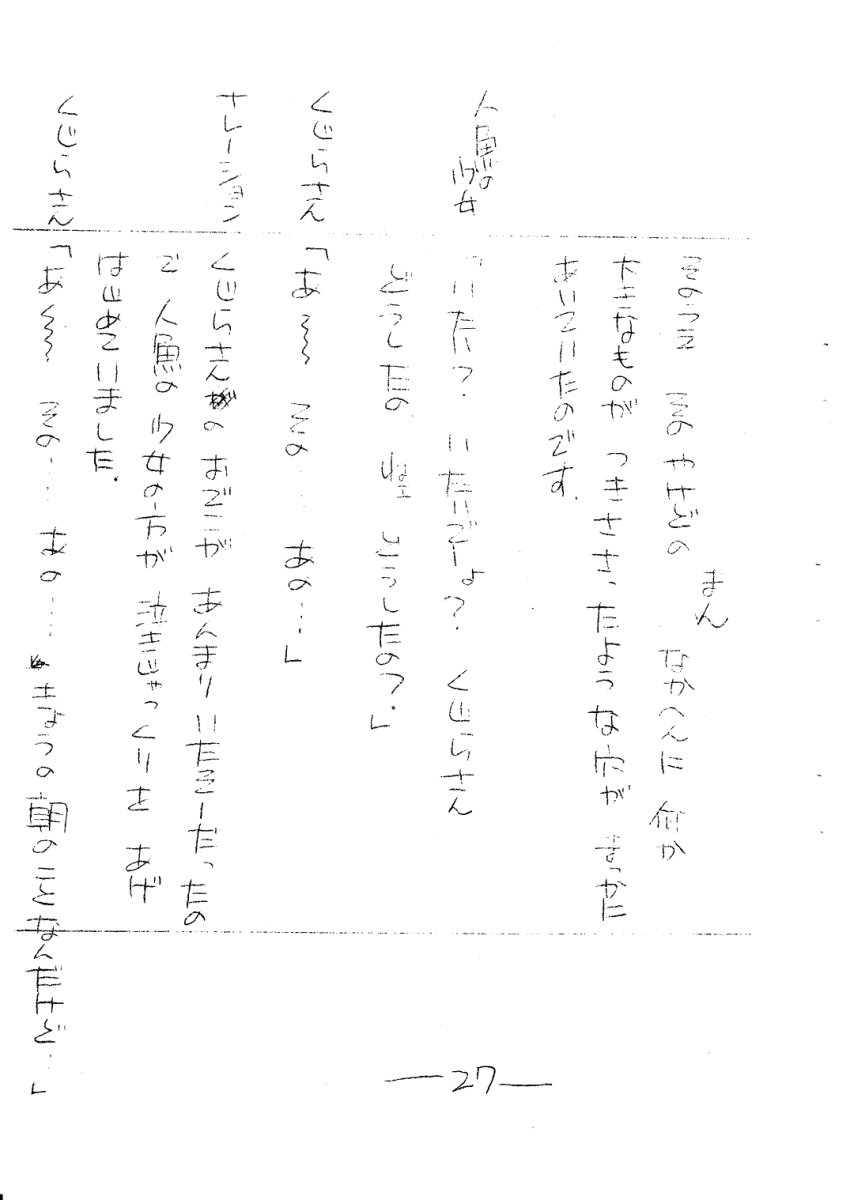 そうして そのやけどの まん なかへんに 何か
大きなものが つきささったような穴が まっかに
あいていたのです。
人魚の少女 「いたい? いたいでしょ? くじらさん
どうしたの ねえ どうしたの?」
くじらさん 「あ〜〜 その‥‥ あの‥‥」
ナレーション くじらさんの おでこが あんまり いたそーだったの
で 人魚の 少女の方が 泣きじゃっくりを あげ
はじめていました。
くじらさん 「あ〜〜〜 その‥‥ あの‥‥ きなつの事のことなんだけど‥‥」
—27—